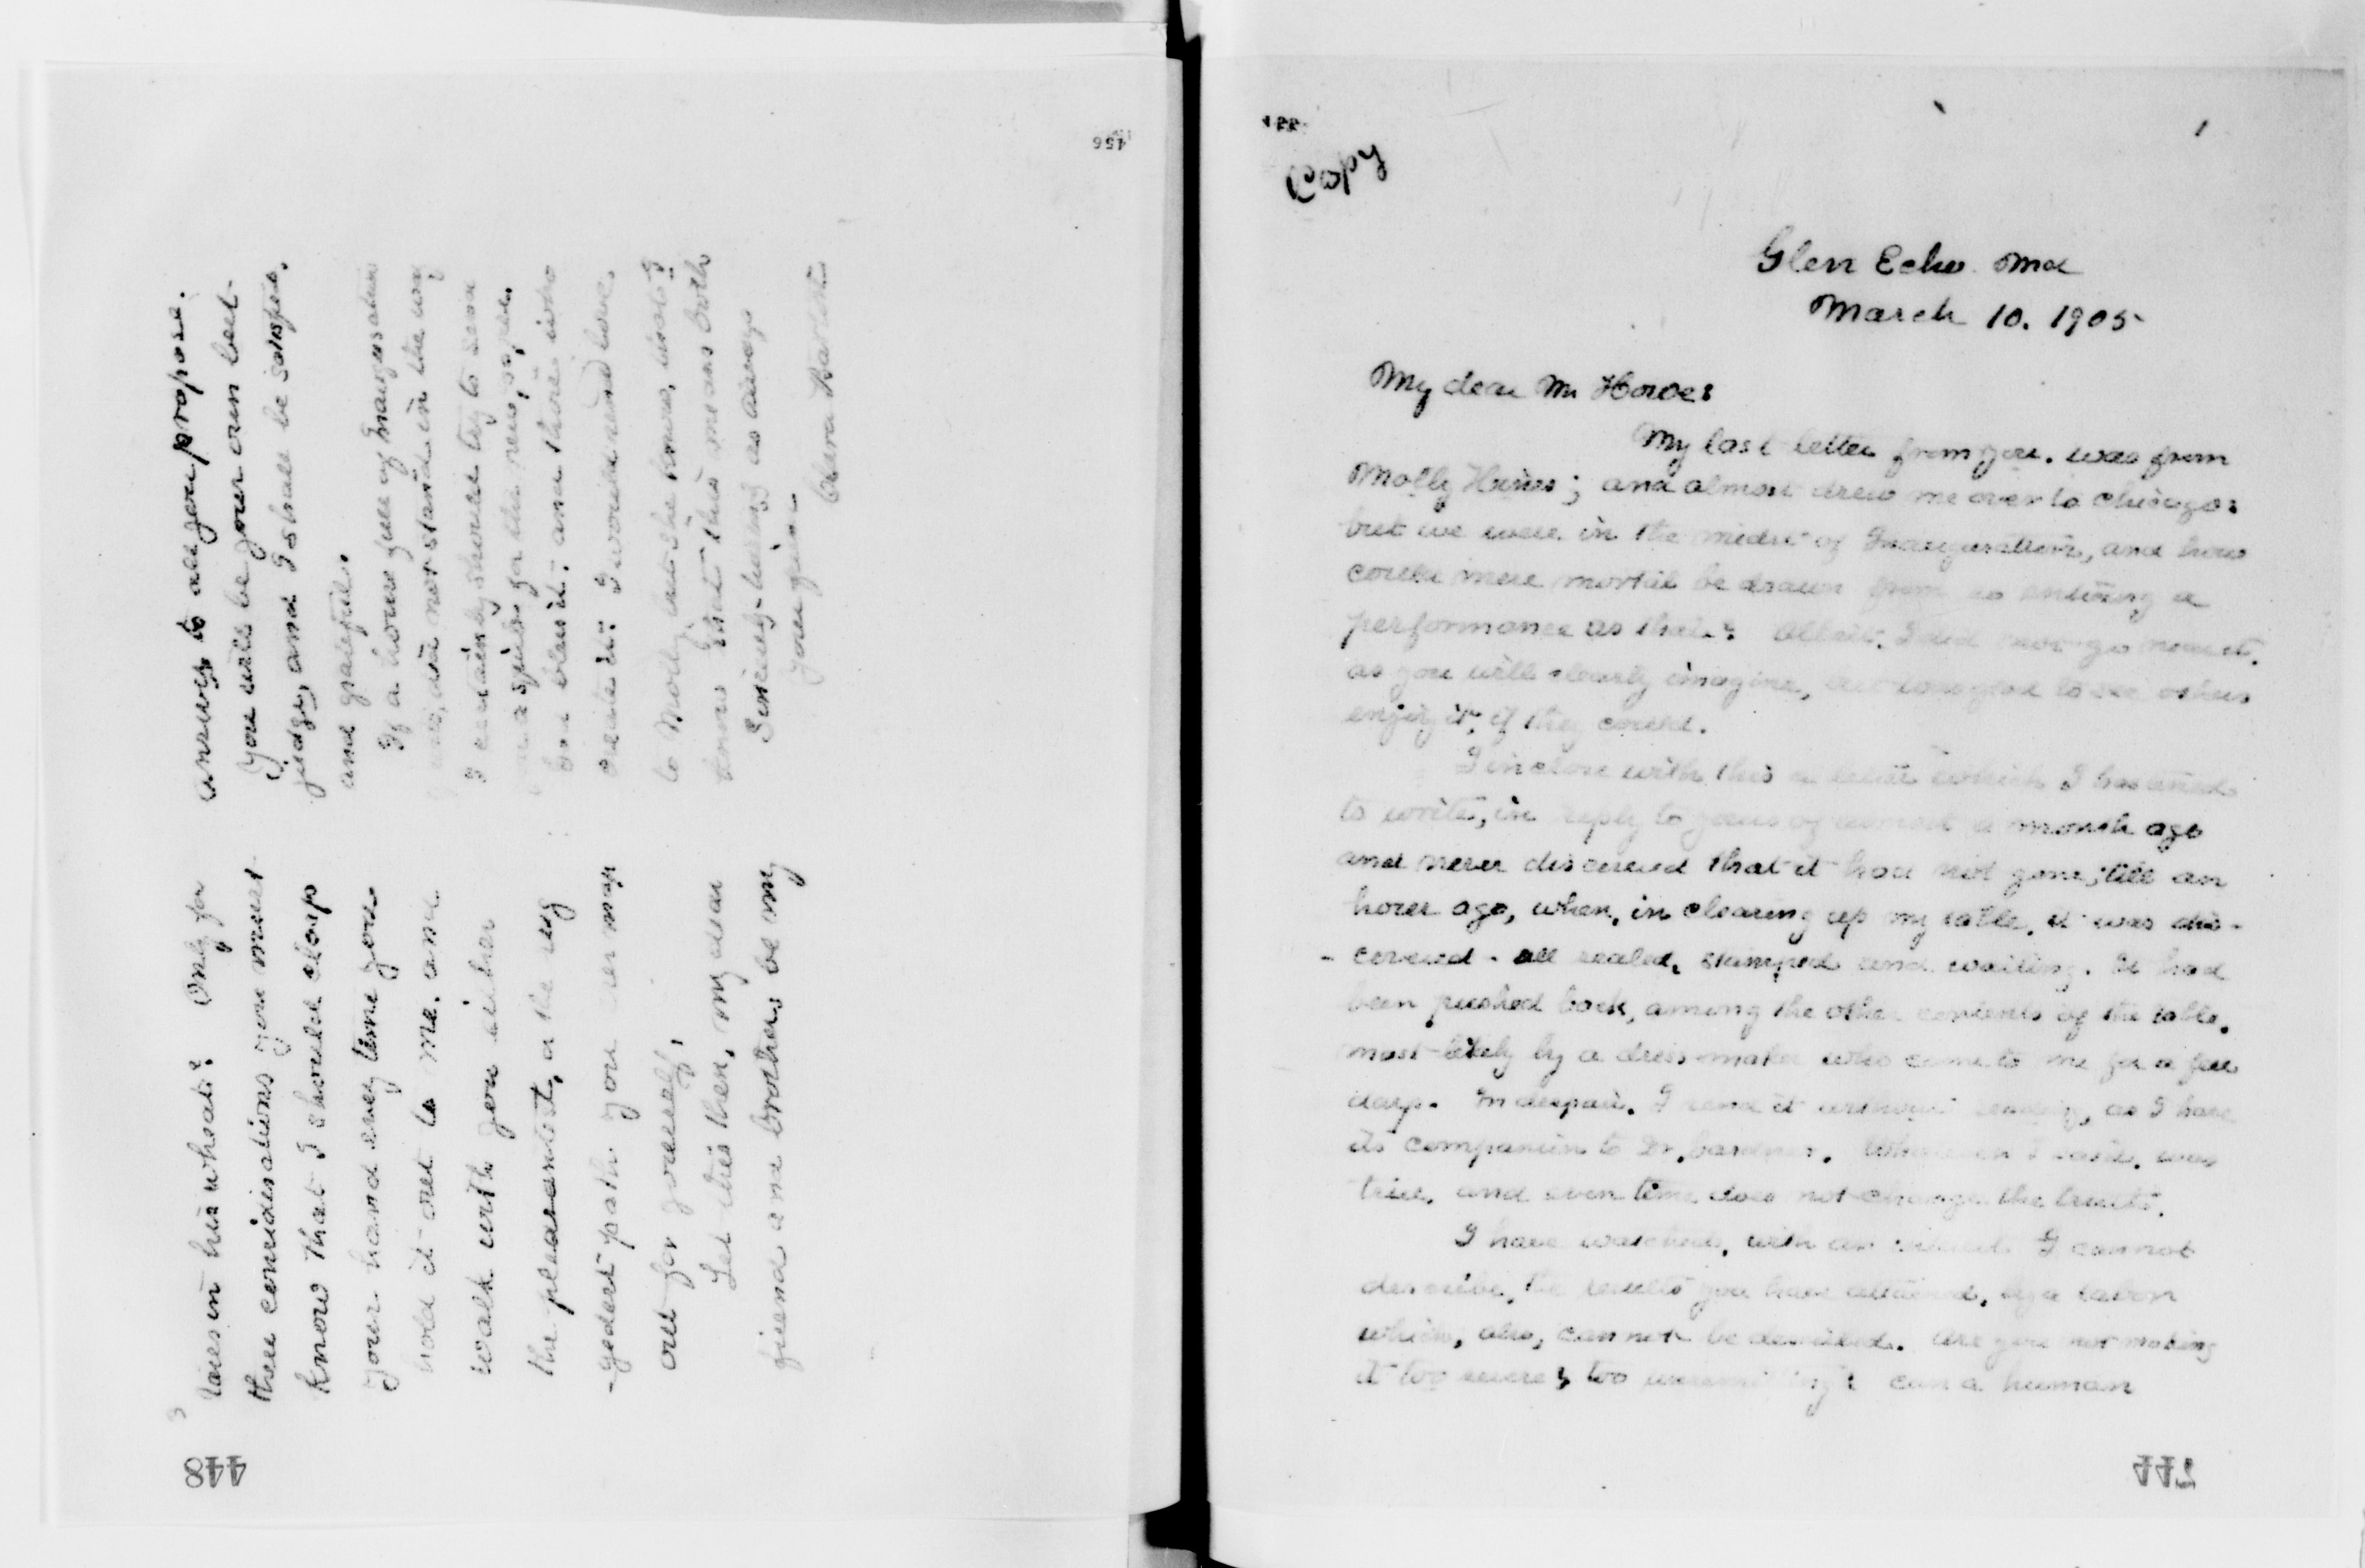 456
answer to all you propose.
You will be your own best
judge, and I shall be satisfied.
and grateful.
If a house full of Inauguration
did not stand in the way
I certainly should try to
a spirit for the new
bless it: and there who
I would send love
to Molly, but she knows,
knows that this means both
Sincerely as always
Yours
Clara Barton
3
taxes in his wheat? Only for
these considerations you must
know that I should clasp
your hand every time you
hold it out to me, and
walk with you either
the pleasantest, or the
path you map
out for yourself,
Let this then, my dear
friend and brother, be my
448
1
Copy
Glen Echo Md
March 10. 1905
My dear Mr Howe:
My last letter from you. was from
Molly Hines; and almost drew me over to Chicago:
but we were in the midst of Inauguration, and how
could mere mortal be drawn from so enticing a
performance as that? Albeit, I did not go near it.
as you will clearly imagine, but was glad to see others
enjoy it, if they could.
I inclose with this a letter which I hastened
to write, in reply to yours of almost a month ago
and never discovered that it had not gone, till an
hour ago, when, in clearing up my table, it was dis-
-covered - all sealed, stamped and waiting. It had
been pushed back, among the other contents of the table,
most likely by a dress-maker who came to me for a few
days. In despair, I send it without reading, as I have
its companion to Dr. Gardner. Whatever I said, was
true, and even time does not change the truth.
I have watched, with an interest I cannot
describe, the results you have attained, by a labor
which, also, cannot be described. Are you not making
it too severe, too unremitting? can a human
447